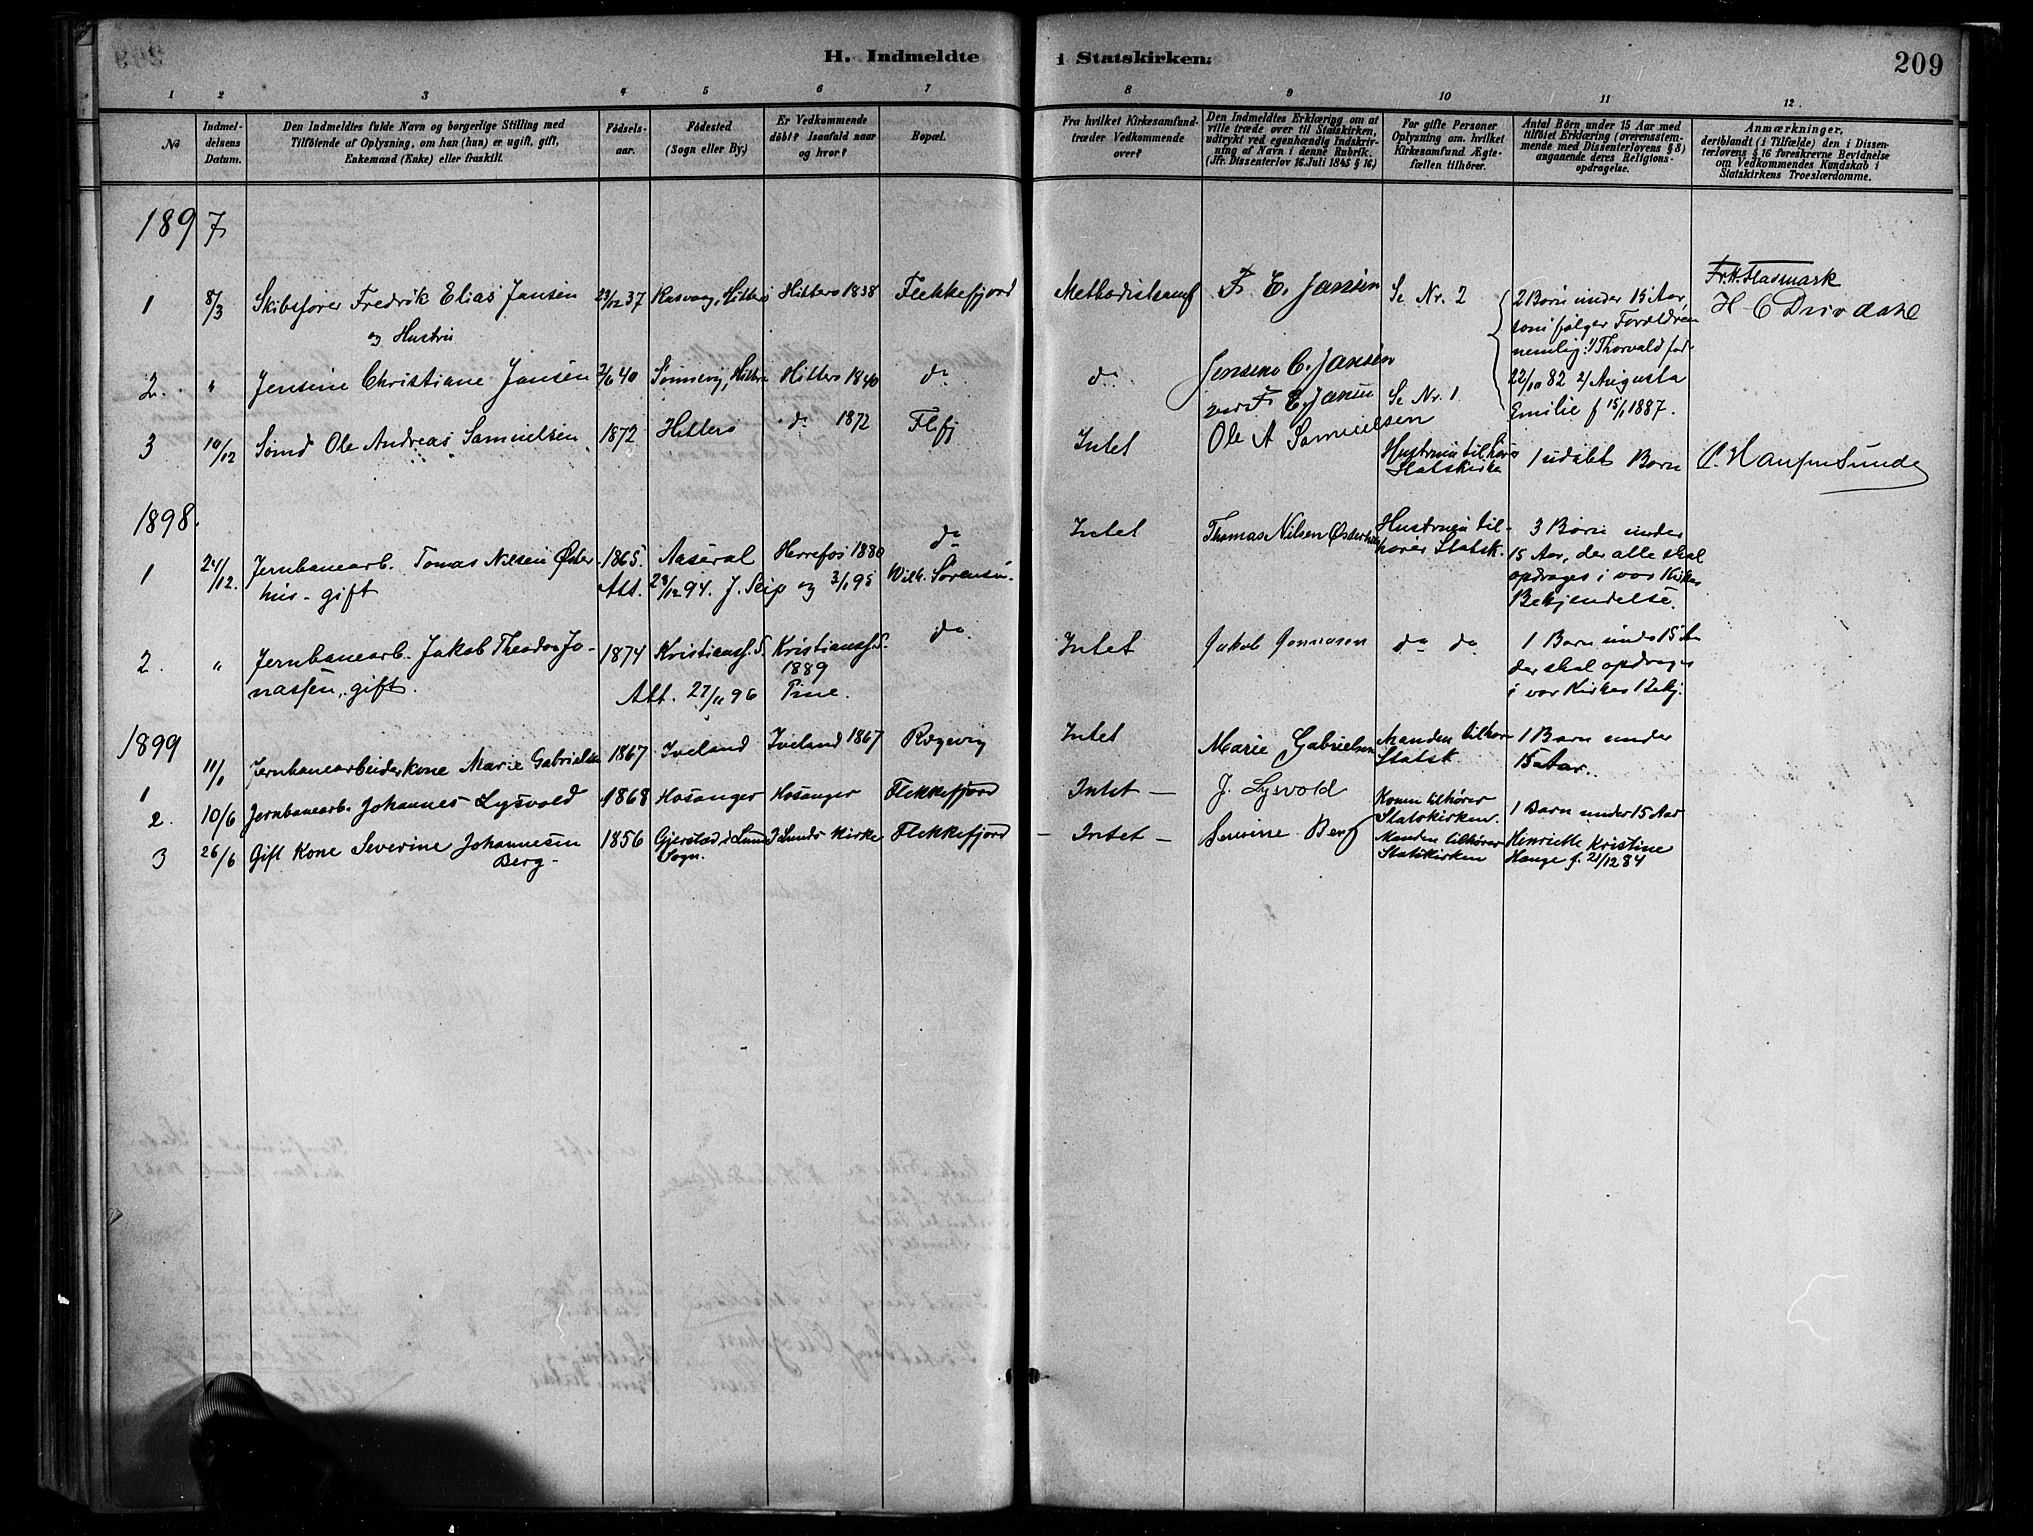 H. Indmeldte i Statskirken.
209
1 2 3 4 5 6 7 8 9 10 11 12.
No
Indmel-
delsens
Datum.
Den Indmeldtes fulde Navn og borgerlige Stilling med
Tilføiende af Oplysning, om han (hun) er ugift, gift,
Enkemand (Enke) eller fraskilt.
Fødsels-
aar.
Fødested
(Sogn eller By.)
Er Vedkommende
døbt? Isaafald naar
og hvor?
Bopæl.
Fra hvilket Kirkesamfund
træder Vedkommende
over?
Den Indmeldtes Erklæring om at
ville træde over til Statskirken,
udtrykt ved egenhændig Indskriv-
ning af Navn i denne Rubrik.
(Jfr. Dissenterlov 16. Juli 1845 § 16)
For gifte Personer
Oplysning om, hvilket
Kirkesamfund Ægte-
fællen tilhører.
Antal Børn under 15 Aar med
tilføiet Erklæring (overensstem-
mende med Dissenterlovens § 8)
angaaende deres Religions-
opdragelse.
Anmærkninger,
deriblandt (i Tilfælde) den i Dissen-
terlovens § 16 foreskrevne Bevidnelse
om Vedkommendes Kundskab i
Statskirkens Troeslærdomme.
1897
1 8/3 Skibsfører Fredrik Elias Jansen 23/12 37 Rasvaag, Hitterø Hitterø 1838 Flekkefjord Methodistsamf F. E. Jansen Se Nr. 2 2 Børn under 15 Aar,
som følger Forældrene
nemlig: 1/ Thorvald fød
22/10 82 2/ Augusta
Emilie f 15/1 1887.
H C Drivdahl
og Hustru
2. " Jensine Christiane Jansen 2/6 40 Sønnevig, Hitterø Hitterø 1840 do do Jensine C. Jansen
ved F E. Jansen Se Nr. 1
3 10/12 Sømd Ole Andreas Samuelsen 1872 Hitterø do 1872 Flfj Intet Ole A Samuelsen Hustruen tilhører
Statskirke 1 udøbt Barn
1898.
1 24/12. Jernbanearb. Tomas Nilsen Øster-
hus - gift 1865. Aaseral Herrefos 1880 do Intet Thomas Nilsen Østerhus Hustruen til-
hører Statsk. 3 Børn under
15 Aar, der alle skal
opdrages i vor Kirkes
Bekjendelse.
Att. 28/12 94. J. Seip og 3/1 95 Wilh. Sørensen.
2. " Jernbanearb. Jakob Theodor Jo-
nassen, gift. 1874 Kristianss. S. Kristianss. S.
1889 do Intet Jakob Jonnasen do do 1 Barn under 15 Aar
der skal opdrages
i vor Kirkes Bekj.
Att. 27/11 96
1899
1 11/1 Jernbanearbeiderkone Marie Gabrielsen 1867 Iveland Iveland 1867 Intet Marie Gabrielsen Manden tilhører
Statsk. 1 Barn under
15 Aar.
2. 10/6 Jernbanearb. Johannes Lysvold 1868 Hosanger Hosanger Flekkefjord Intet — J. Lysvold Konen tilhører
Statskirken. 1 Barn under 15 Aar
3 26/6 Gift Kone Severine Johannesen
Berg - 1856 Gjerstad i Lund
Sogn. I Lunds Kirke Flekkefjord - Intet - Sevrine Berg Manden tilhører
Statskirken Henriette Kristine
Hauge f. 21/12 84